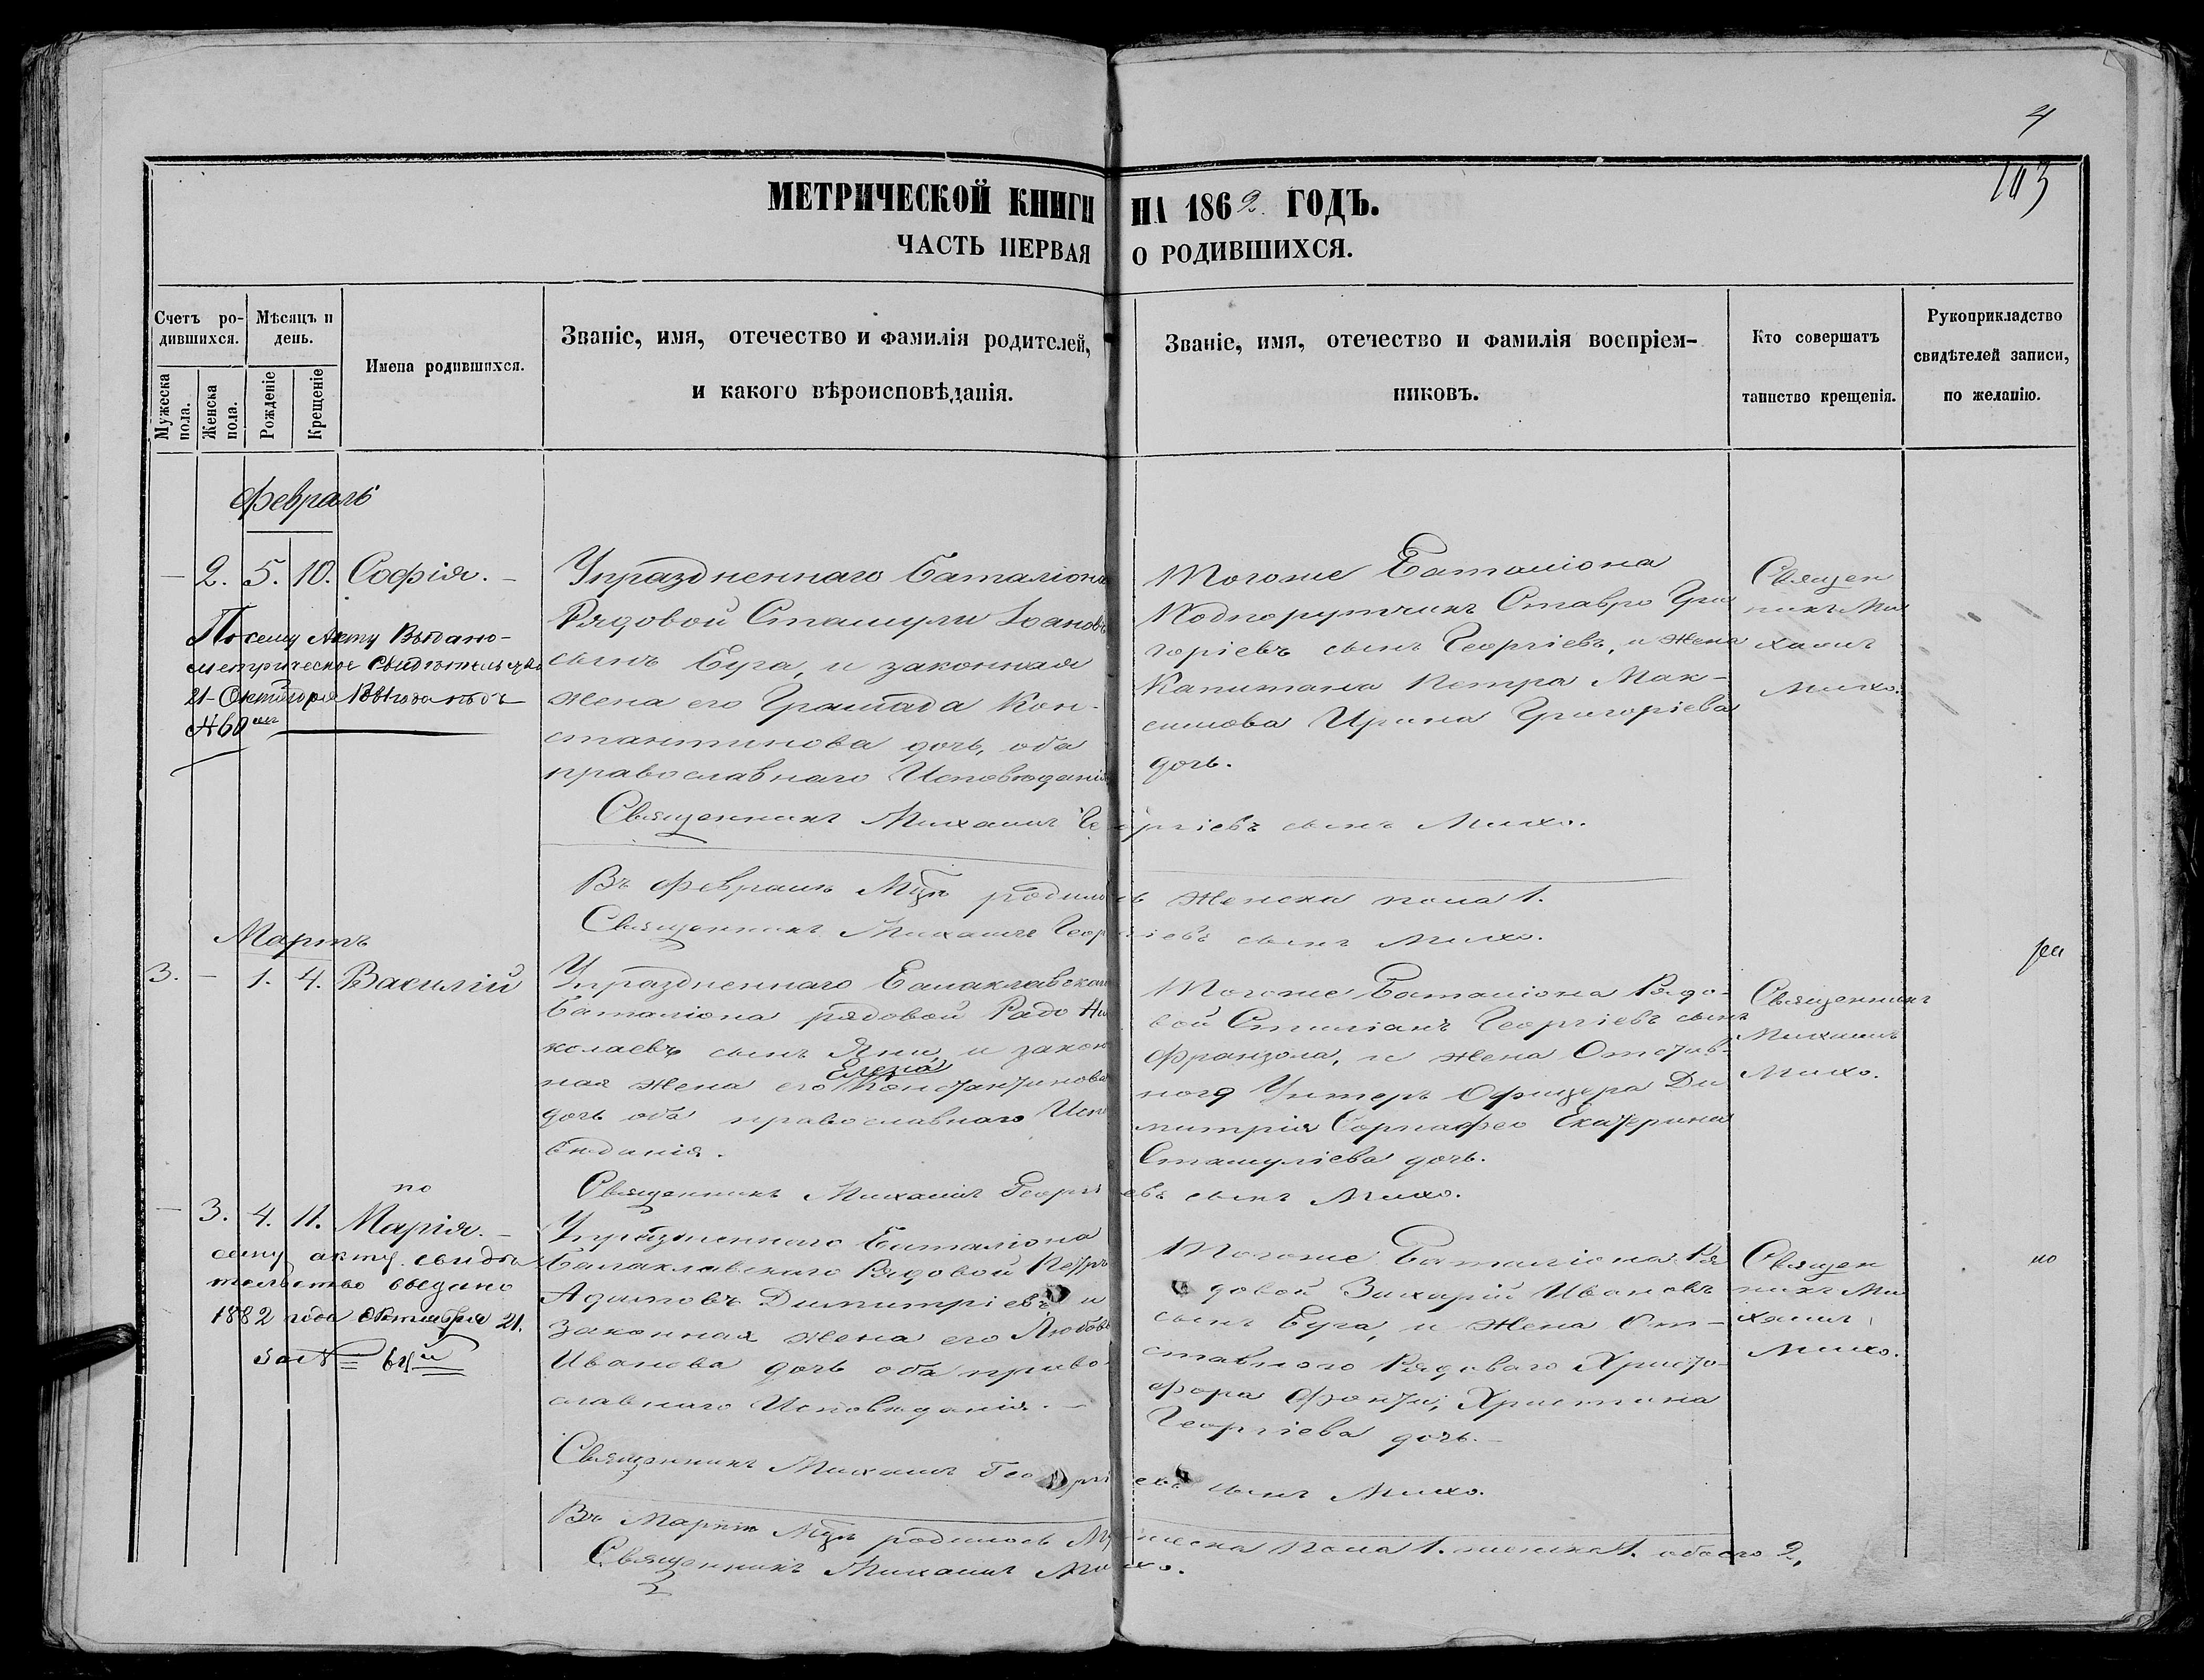 4
103
МЕТРИЧЕСКОЙ КНИГИ НА 1862 ГОДЪ.
ЧАСТЬ ПЕРВАЯ О РОДИВШИХСЯ.
Счетъ ро-
дившихся.
Мужеска пола.
Женска пола.
Мѣсяцъ и
день.
Рожденіе
Крещеніе
Имена родившихся.
Званіе, имя, отечество и фамилія родителей,
и какого вѣроисповѣданія.
Званіе, имя, отечество и фамилія воспріем-
никовъ.
Кто совершатъ
таинство крещенія.
Рукоприкладство
свидѣтелей записи,
по желанію.
Февраль
2. 5. 10. Софія.
По сему Акту Выдано
метрическое свидѣтельство
21 Октября года подъ
№ 60
Упраздненнаго Баталіона
Рядовой Стамули Іоановъ
сынъ Буга, и законная
жена его Грамада Кон-
стантинова дочь, оба
православнаго Исповѣданія
Тогоже Баталіона
Подпорутчикъ Ставро Гри
горіевъ сынъ Георгіевъ, и жена
Капитана Петра Мак-
симова Ирина Григоріева
дочь.
Священ
никъ Ми
хаилъ
Михо.
Священникъ Михаилъ Георгіевъ сынъ Михо.
Въ Февралѣ Мцѣ родилось женска пола 1.
Священникъ Михаилъ Георгіевъ сынъ Михо.
Мартъ
3. - 1. 4. Василій
Упраздненнаго Балаклавскаго
Баталіона рядовой Радо Ни
колаевъ сынъ Яни, и закон
ная жена его Елена Константинова
дочь оба православнаго Испо
вѣданія.
Тогоже Баталіона Рядо-
вой Стиліанъ Георгіевъ сынъ
Франзола, и жена Отстав-
ного Унтеръ Офицера Ди
митрія Екатерина
Стамуліева дочь.
Священникъ
Михаилъ
Михо.
Священникъ Михаилъ Георгіевъ сынъ Михо.
- 3. 4. 11. Марія.
по
сему акту свидѣ
тельство выдано
1882 года Октября 21.
за №
Упраздненнаго Баталіона
Балаклавскаго Рядовой Петръ
Адамовъ Димитріевъ и
законная жена его Любовь
Иванова дочь оба право-
славнаго Исповѣданія.
Тогоже Баталіона Ря
довой Захарій Ивановъ
сынъ Буга, и жена От-
ставного Рядоваго Христо-
фора Фонти, Христина
Георгіева дочь.
Священ
никъ Ми
хаилъ
Михо.
Священникъ Михаилъ Георгіевъ сынъ Михо.
Въ Мартѣ Мцѣ родилось Мужеска пола 1. женска 1. обоего 2,
Священникъ Михаилъ Михо.